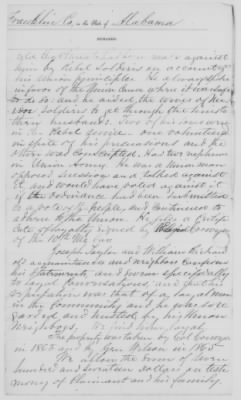 Franklin Co, in the State of Alabama
REMARKS.
made against
him by Rebel Soldiers on account of
his Union principles. He always spoke
in favor of the Union cause when it was safe
to do so: and he aided the wives of
soldiers to get through the lines to
their husbands. Two of his sons were
in the Rebel service - one volunteered
in spite of his persuasions and the
other was conscripted. Had two nephews
in Union Army. He was a Union man
opposed secession and talked against
it, and would have voted against it
if the ordinance had been submitted
to a vote of the people, and continued to
adhere to the Union. He files a Certifi-
cate of loyalty signed by
of the 10th
Joseph Taylor and William Richard
old acquaintances and neighbors confirm
his statements, and swear specifically
to loyal conversations, and that his
reputation was that of a loyal man
in the community and he was so re-
garded and trusted by his Union
neighbors. We find him loyal.
The property was taken by Col
in 1863 and by Gen Wilson in 1865.
We allow the sum of seven
hundred and seventeen dollars on testi-
mony of Claimant and his family.